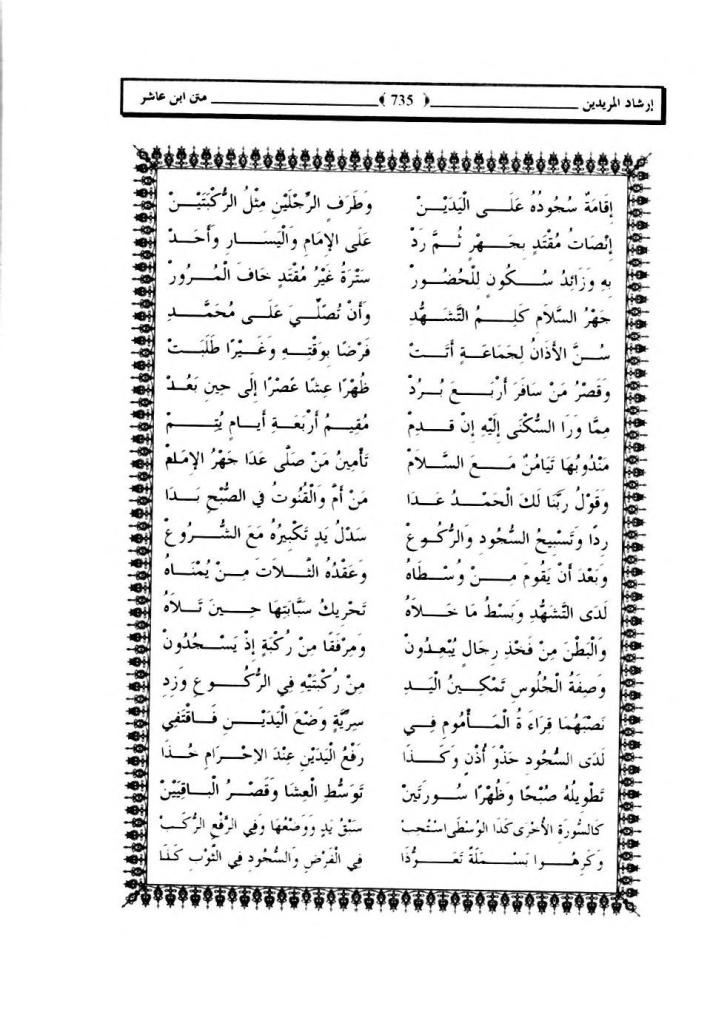 إرشاد المريدين ﴿ 735 ﴾ متن ابن عاشر
إِقَامَةٌ سُجُودُهُ عَلَى الْيَدَيْنْ وَطَرَفِ الرِّجْلَيْنِ مِثْلُ الرُّكْبَتَيْنْ
إِنْصَاتُ مُقْتَدٍ بِجَهْرٍ ثُمَّ رَدْ عَلَى الإِمَامِ وَالْيَسَارِ وَأَحَدْ
بِهِ وَزَائِدُ سُكُونٍ لِلْحُضُورْ سَتْرَةُ غَيْرُ مُقْتَدٍ خَافَ الْمُرُورْ
جَهْرُ السَّلاَمِ كَلِمُ التَّشَهُّدِ وَأَنْ تُصَلِّيَ عَلَى مُحَمَّدِ
سُنَّ الأَذَانُ لِجَمَاعَةٍ أَتَتْ فَرْضًا بِوَقْتِهِ وَغَيْرًا طَلَبَتْ
وَقَصْرُ مَنْ سَافَرَ أَرْبَعَ بُرُدْ ظُهْرًا عِشًا عَصْرًا إِلَى حِينِ بَعُدْ
مِمَّا وَرَا السُّكْنَى إِلَيْهِ إِنْ قَدِمْ مُقِيمُ أَرْبَعَةِ أَيَامٍ يُتِمْ
مَنْدُوبُهَا تَيَامُنٌ مَعَ السَّلاَمْ تَأْمِينُ مَنْ صَلَّى عَدَا جَهْرَ الإِمَامْ
وَقَوْلُ رَبَّنَا لَكَ الْحَمْدُ عَدَا مَنْ أَمَّ وَالْقُنُوتُ فِي الصُّبْحِ بَدَا
رِدًا وَتَسْبِيحُ السُّجُودِ وَالرُّكُوعْ سَدْلُ يَدٍ تَكْبِيرُهُ مَعَ الشُّرُوعْ
وَبَعْدَ أَنْ يَقُومَ مِنْ وُسْطَاهُ وَعَقْدُهُ الثَّلاَثَ مِنْ يُمْنَاهُ
لَدَى التَّشَهُّدِ وَبَسْطُ مَا خَلاَهُ تَحْرِيكُ سَبَّابَتِهَا حِينَ تَلاَهُ
وَالْبَطْنَ مِنْ فَخْذٍ رِجَالٌ يُبْعِدُونْ وَمِرْفَقًا مِنْ رُكْبَةٍ إِذْ يَسْجُدُونْ
وَصِفَةُ الْجُلُوسِ تَمْكِينُ الْيَدِ مِنْ رُكْبَتَيْهِ فِي الرُّكُوعِ وَزِدِ
نَصْبَهُمَا قِرَاءَةُ الْمَأْمُومِ فِي سِرِّيَّةٍ وَضْعُ الْيَدَيْنِ فَاقْتَفِي
لَدَى السُّجُودِ حَذْوَ أُذْنٍ وَكَذَا رَفْعُ الْيَدَيْنِ عِنْدَ الاِحْرَامِ خُذَا
تَطْوِيلُهُ صُبْحًا وَظُهْرًا سُورَتَيْنْ تَوَسُّطُ الْعِشَا وَقَصْرُ الْبَاقِيَيْنْ
كَالسُّورَةِ الأُخْرَى كَذَا الوُسْطَى اسْتُحِبْ سَبْقُ يَدٍ وَوَضْعُهَا وَفِي الرَّفْعِ الرُّكَبْ
وَكَرِهُوا بَسْمَلَةً تَعَوُّذَا فِي الْفَرْضِ وَالسُّجُودِ فِي الثَّوْبِ كَذَا